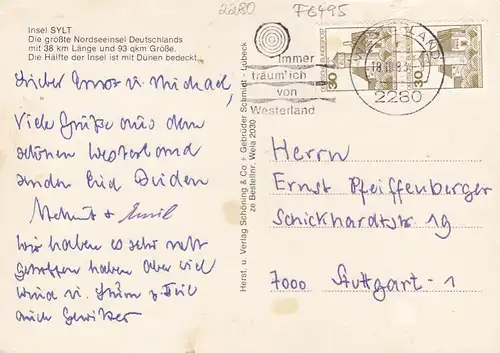 2280
F6495
Insel SYLT
Die größte Nordseeinsel Deutschlands
mit 38 km Länge und 93 qkm Größe.
Die Hälfte der Insel ist mit Dünen bedeckt.
Lieber Ernst u. Michael,
Viele Grüße aus dem
schönen Westerland
senden Euch Beiden
Helmut + Emil
Wir haben es sehr nett
getroffen haben aber viel
Wind u. Sturm z. Teil
auch Gewitter
Herst. u. Verlag Schöning & Co + Gebrüder Schmidt · Lübeck
ze Bestellnr. Wela 2030
Immer
träum' ich
von
Westerland
WESTERLAND
2280
30
30
Herrn
Ernst Pfeiffenberger
Schickhardtstr. 19
7000 Stuttgart-1